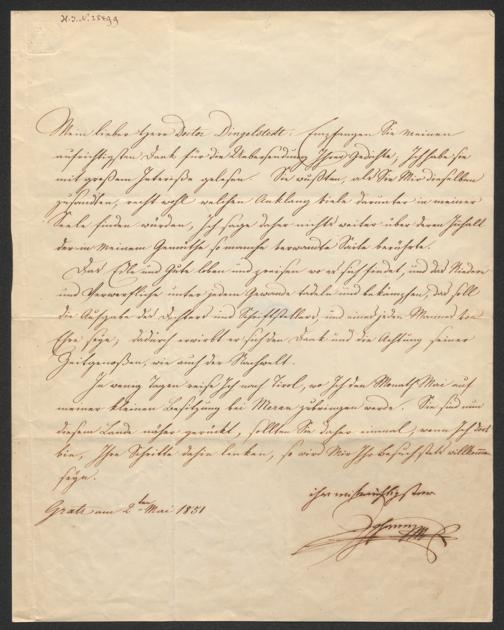 H. I. N. 25499
Mein lieber Herr Doctor Dingelstedt! Empfangen Sie meinen
aufrichtigsten Dank für die Uebersendung Ihrer Gedichte, Ich habe sie
mit großem Interesse gelesen. Sie wußten, als Sie Mir dieselben
zusandten, recht wohl welchen Anklang viele darunter in meiner
Seele finden würden, Ich sage daher nichts weiter über deren Inhalt
der in Meinem Gemüthe so manche verwandte Saite berührte.
Das Edle und Gute loben und preisen wo er's findet, und das Niedere
und Verwerfliche unter jedem Gewande tadeln und bekämpfen, das soll
die Aufgabe des Dichters und Schriftstellers, und eines jeden Mannes von
Ehre seyn; dadurch erwirbt er sich den Dank und die Achtung seiner
Zeitgenoßen, wie auch der Nachwelt.
In wenig Tagen reise Ich nach Tirol, wo Ich den Monath Mai auf
meiner kleinen Besitzung bei Meran zubringen werde. Sie sind nun
diesem Lande näher gerückt, sollten Sie daher einmal, wenn Ich dort
bin, Ihre Schritte dahin lenken, so wird Mir Ihr Besuch stets willkommen
seyn.
Ihr aufrichtigster
Gratz am 2ten Mai 1851
Johann